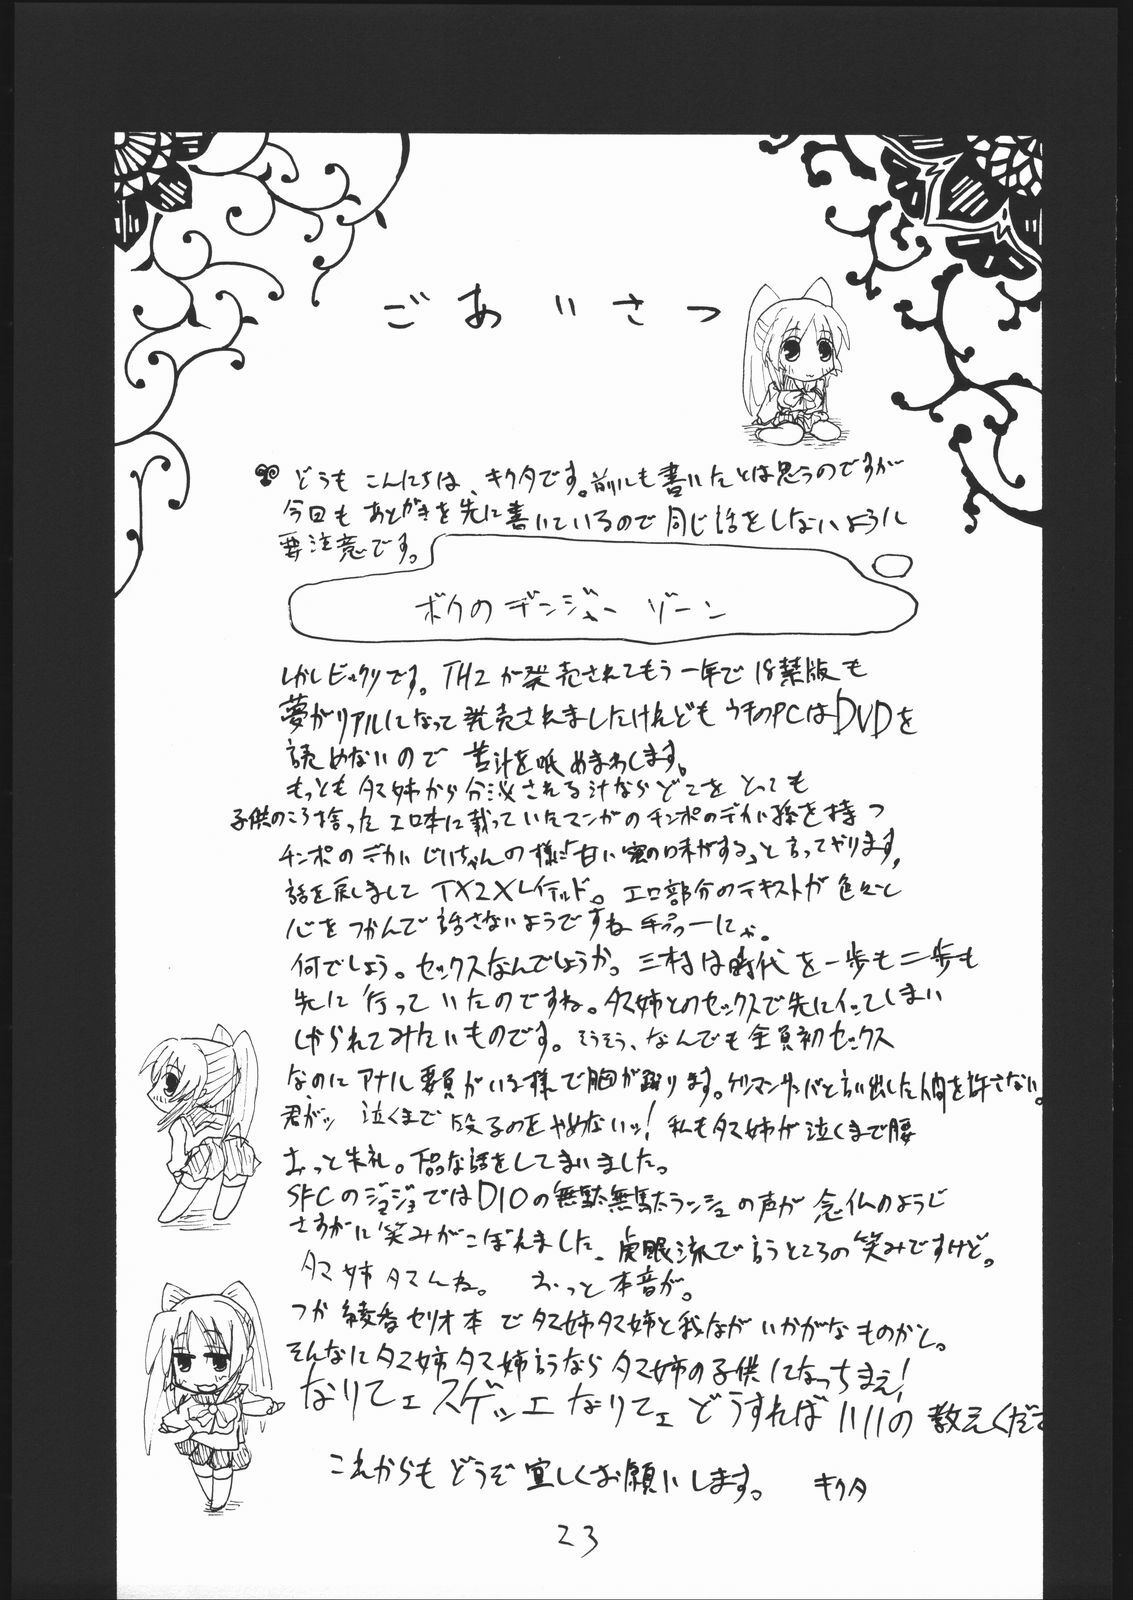 ごあいさつ
どうも こんにちは、キクタです。前にも書いたとは思うのですが
今回も あとがきを先に書いているので同じ話をしないように
要注意です。
ボクのデンジャー ゾーン
しかしビックリです。TH2が発売されてもう一年で18禁版も
夢がリアルになって発売されましたけれども ウチのPCはDVDを
読めないので 苦汁を
もっとも タマ姉から分泌される汁ならどこを とっても
子供のころ拾った エロ本に載っていたマンガのチンポのデカい孫を持つ
チンポのデカい じいちゃんの様に「甘い蜜の味がする」と言ってやります。
話を戻しまして TX2Xレイテルド。エロ部分のテキストが 色々と
心を つかんで 話さないようですね
何でしょう。セックスなんでしょうか。三村は時代を一歩も二歩も
先に 行って いたのですね。タマ姉とのセックスで先にイッてしまい
しかられてみたいものです。そうそう、なんでも全員初セックス
なのに アナル要員がいる様で胸が躍ります。ゲリマンサンバと言い出した人間を許さない。
君がッ 泣くまで 殴るのをやめないッ！私もタマ姉が泣くまで腰
おっと失礼。下品な話をしてしまいました。
SFCのジョジョではDIOの無駄無駄ラッシュの声が 念仏のようで
さすがに笑みがこぼれました。虎眼流で言うところの笑みですけど。
タマ姉タマんね。 おっと本音が。
つか 綾香セリオ本 でタマ姉タマ姉と我ながら いかがなものかと。
そんなにタマ姉タマ姉言うならタマ姉の子供になっちまえ！
なりてェ スゲッェ なりてェ どうすればいいの 教えくださ
これからも どうぞ 宜しくお願いします。 キクタ
23